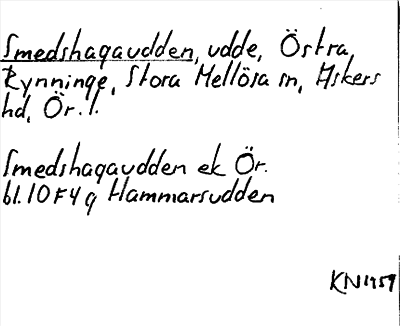 Smedshagaudden, udde, Östra
Rynninge, Stora Mellösa sn, Askers
hd, Ör. l.
Smedshagaudden ek Ör.
bl. 10F4g Hammarsudden
KN1959